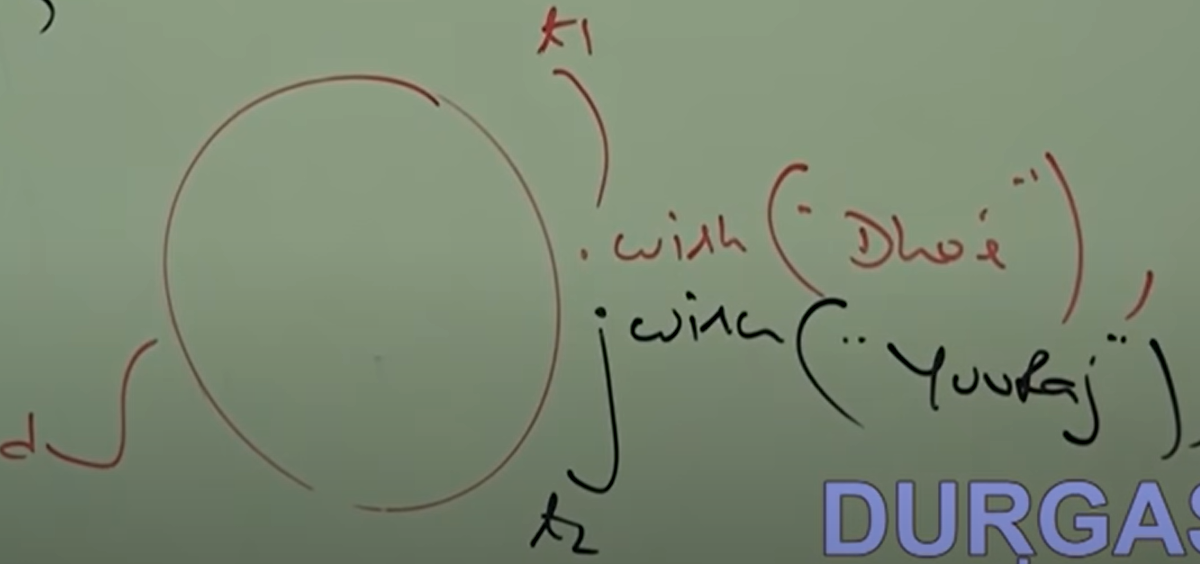 )
t1
.wish("Dhoi");
.wish("Yuvraj");
d
t2
DURGAS